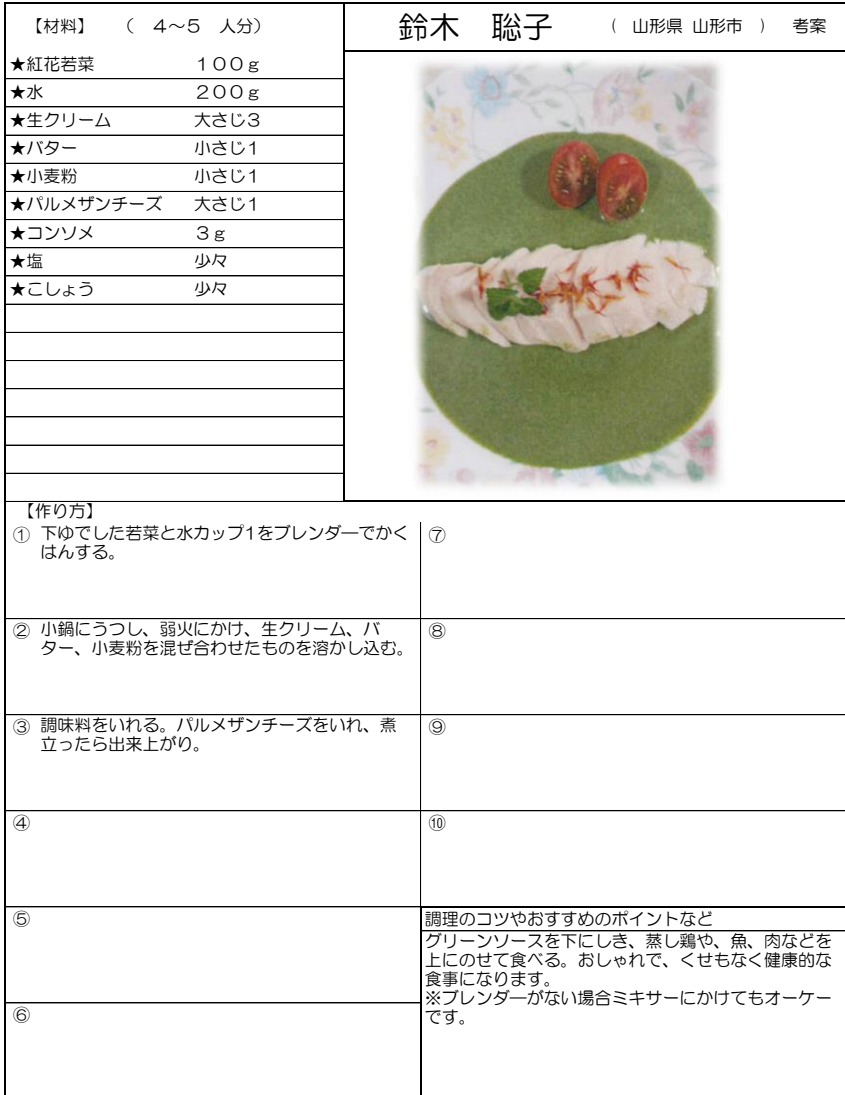 【材料】 （ 4～5 人分）
鈴木 聡子 （ 山形県 山形市 ） 考案
★紅花若菜 １００ｇ
★水 ２００ｇ
★生クリーム 大さじ３
★バター 小さじ１
★小麦粉 小さじ１
★パルメザンチーズ 大さじ１
★コンソメ ３ｇ
★塩 少々
★こしょう 少々
【作り方】
① 下ゆでした若菜と水カップ1をブレンダ―でかく
はんする。
② 小鍋にうつし、弱火にかけ、生クリーム、バ
ター、小麦粉を混ぜ合わせたものを溶かし込む。
③ 調味料をいれる。パルメザンチーズをいれ、煮
立ったら出来上がり。
④
⑤
⑥
⑦
⑧
⑨
⑩
調理のコツやおすすめのポイントなど
グリーンソースを下にしき、蒸し鶏や、魚、肉などを
上にのせて食べる。おしゃれで、くせもなく健康的な
食事になります。
※ブレンダ―がない場合ミキサーにかけてもオーケー
です。